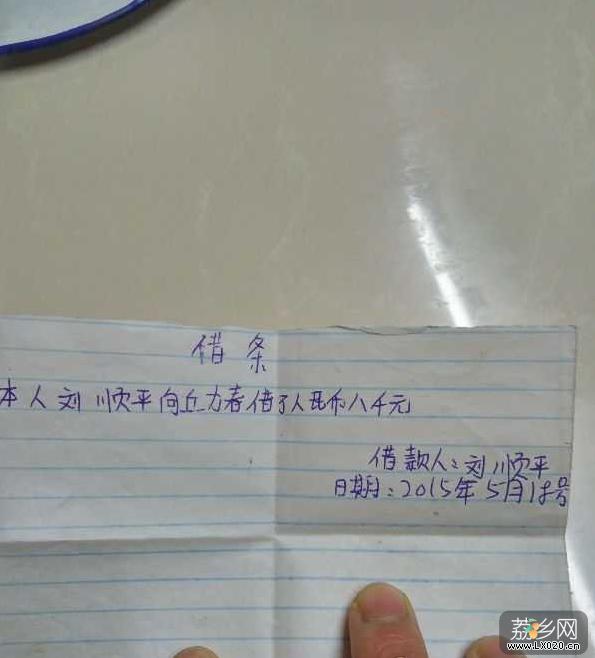 借条
本人刘顺平向丘力春借了人民币八千元
借款人：刘顺平
日期：2015年5月18号
荔乡网
www.LX020.cn